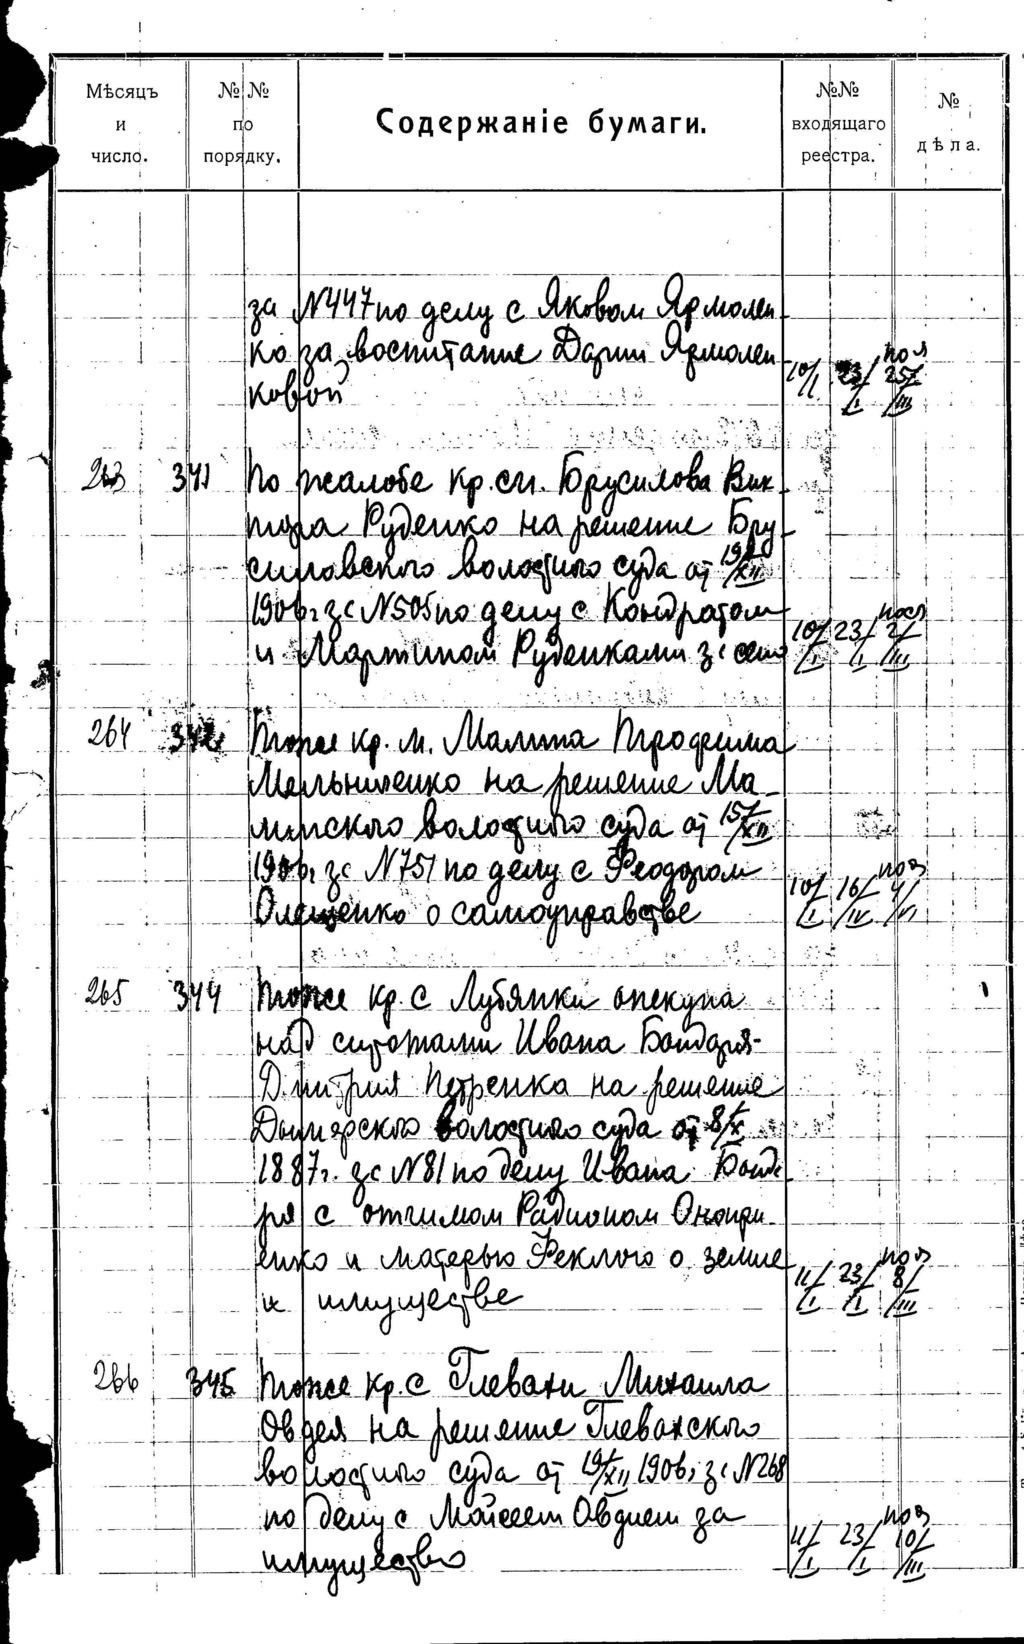 Мѣсяцъ и число.
№№ по порядку.
Содержаніе бумаги.
№№ входящаго реестра.
№ дѣла.
за №447 по делу с Яковом Ярмолен
ко за воспитание Дарии Ярмолен
ковой 10/I 23/I 25/III
263 341 По жалобе кр. см. Брусилова Вик
тора Руденко на решение Бру
силовского волостного суда от 19/XII
1906г за №505 по делу с Кондратом
и Мартином Руденками за сено 10/I 23/I 2/III
264 342 Тоже кр. м. Малина Трофима
Мельниченко на решение Ма
линского волостного суда от 15/XII
1906г за №751 по делу с Феодором
Олещенко о самоуправстве 10/I 16/IV 4/VI
265 344 Тоже кр. с Лубянки опекуна
над сиротами Ивана Бондаря
Дмитрия Петренка на решение
Дымерского волостного суда от 8/X
1887г. за №81 по делу Ивана Бонда
ря с отчимом Радионом Оноприенко
енко и матерью Феклою о земле
и имуществе 11/I 23/I 8/III
266 345 Тоже кр. с Глевахи Михаила
Овдея на решение Глевахского
волостного суда от 19/XII 1906г за №268
по делу с Мойсеем Овдием за
имущество 11/I 23/I 10/III